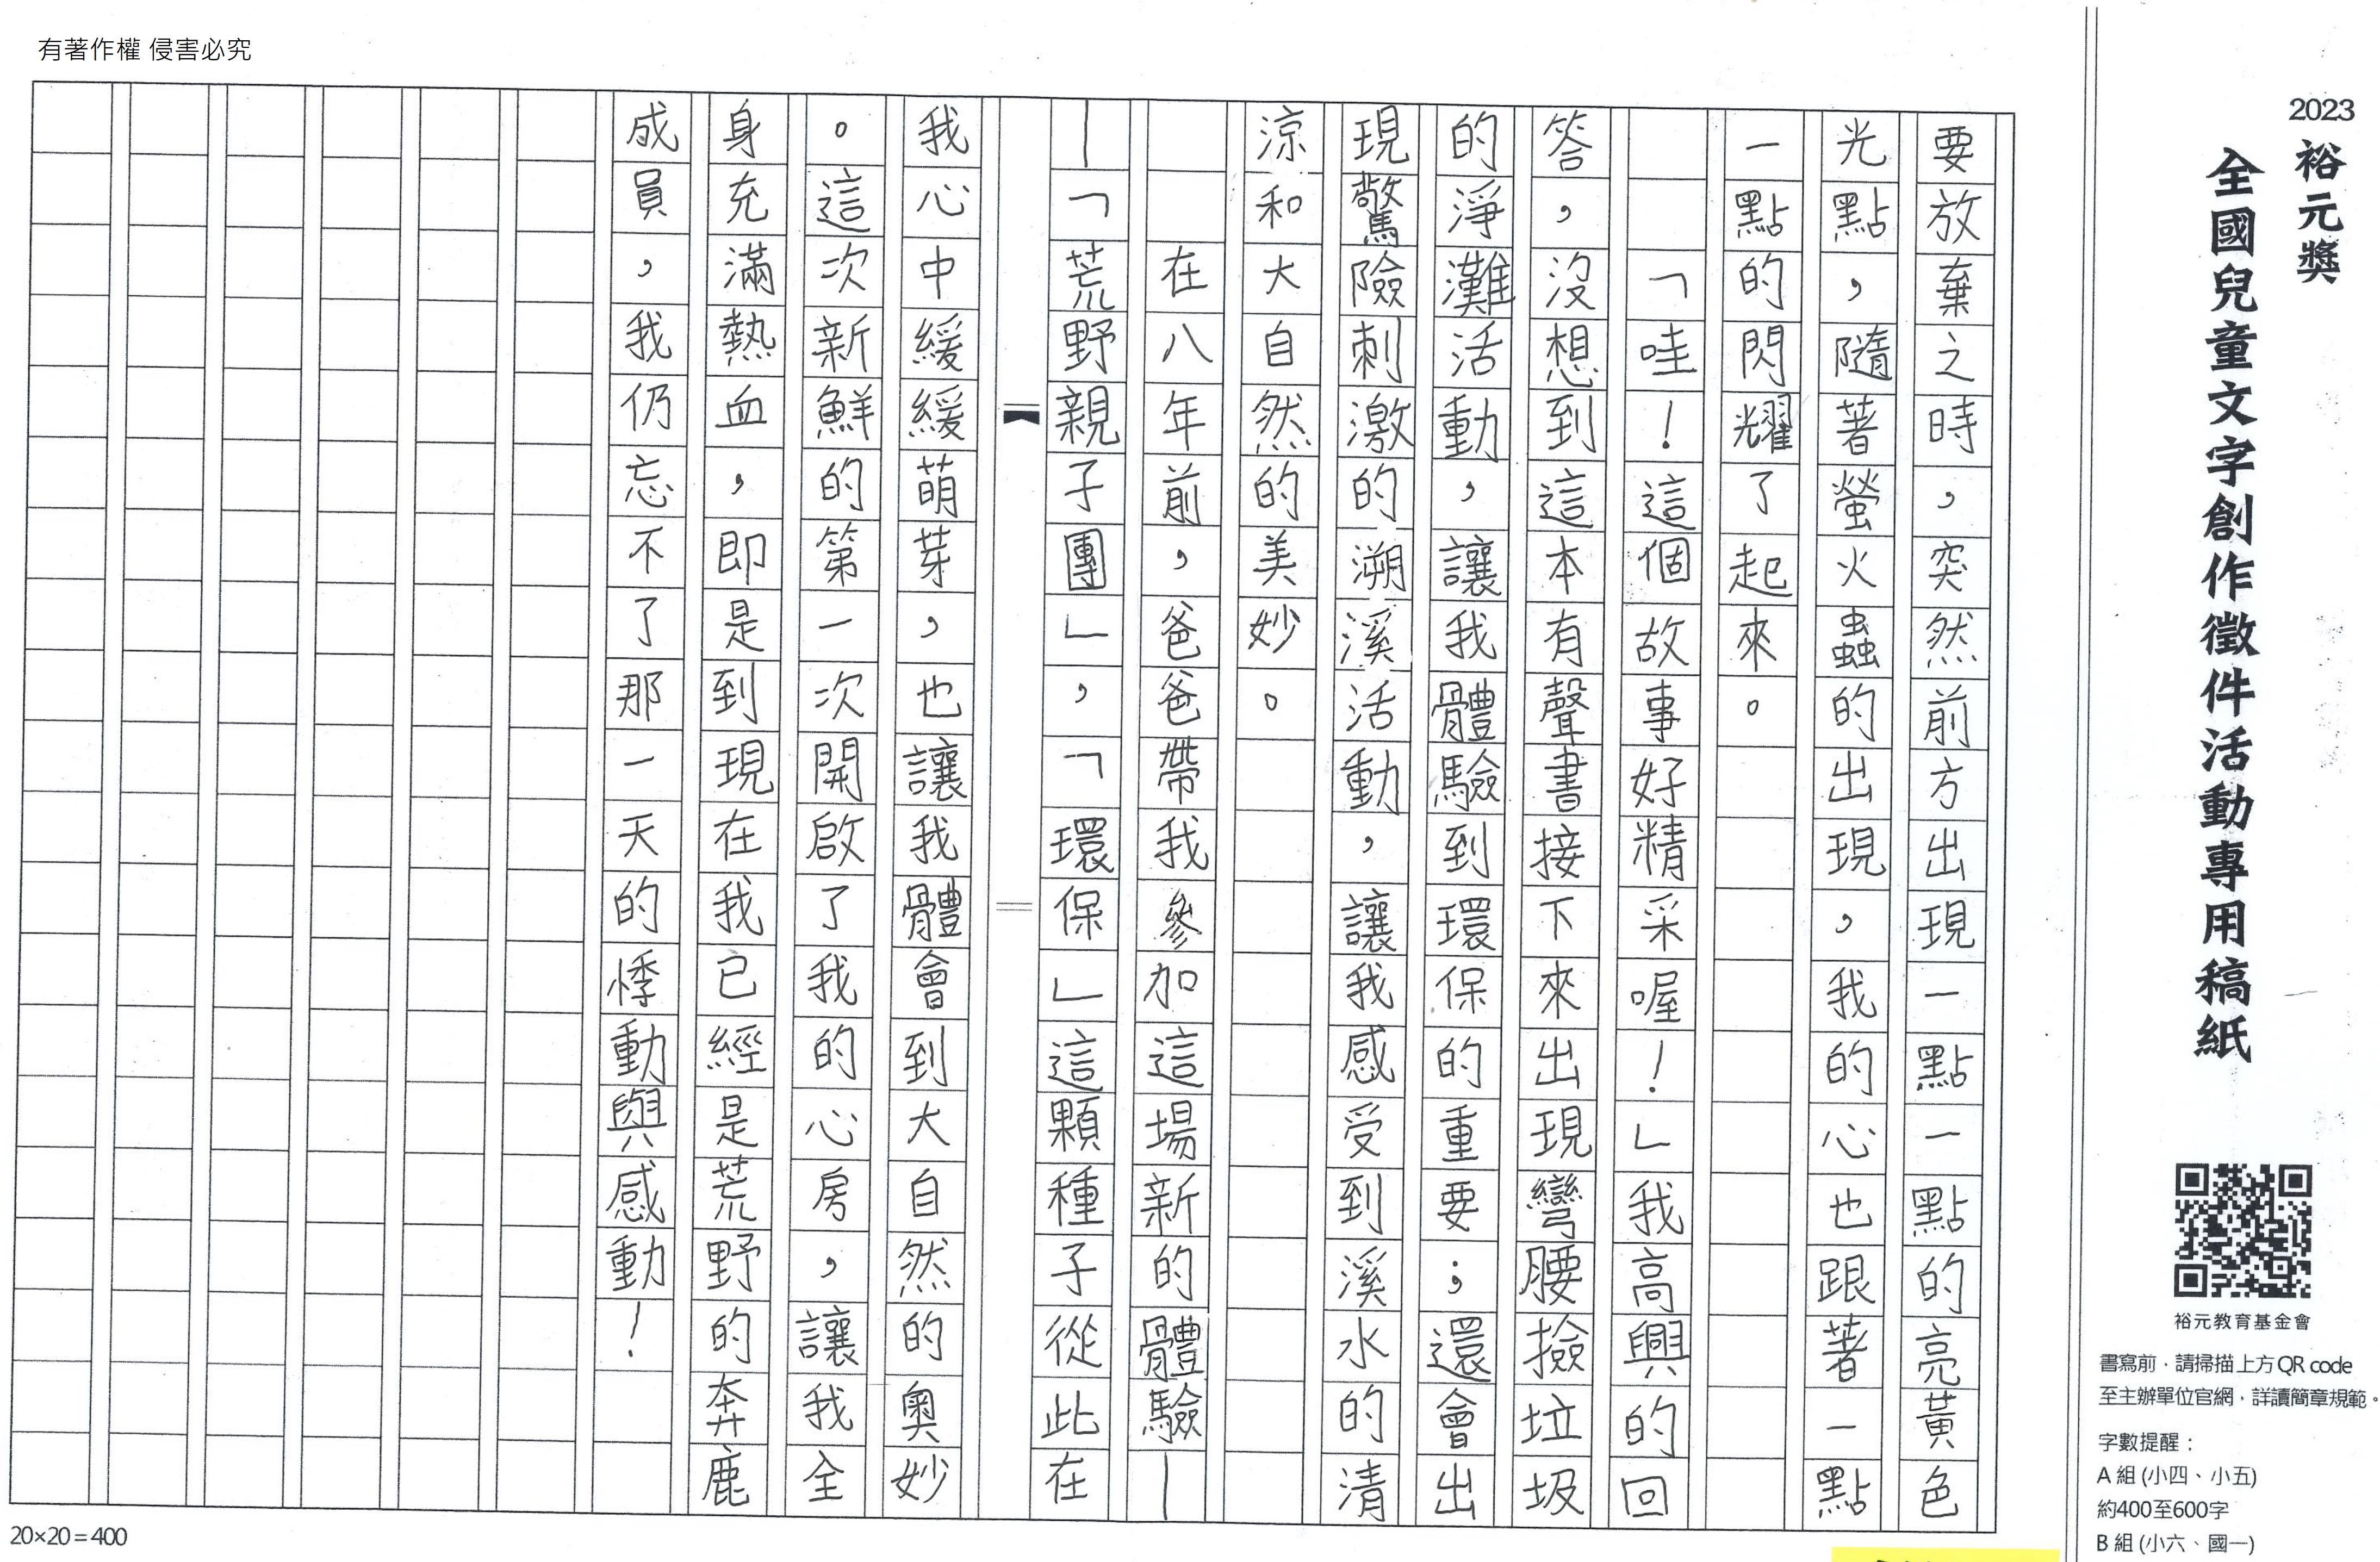 有著作權 侵害必究
2023
裕元獎
全國兒童文字創作徵件活動專用稿紙
裕元教育基金會
書寫前，請掃描上方QR code
至主辦單位官網，詳讀簡章規範。
字數提醒：
A 組 (小四、小五)
約400至600字
B 組 (小六、國一)
要放棄之時，突然前方出現一點一點的亮黃色
光點，隨著螢火蟲的出現，我的心也跟著一點
一點的閃耀了起來。
「哇！這個故事好精采喔！」我高興的回
答，沒想到這本有聲書接下來出現彎腰撿垃圾
的淨灘活動，讓我體驗到環保的重要；還會出
現驚險刺激的溯溪活動，讓我感受到溪水的清
涼和大自然的美妙。
在八年前，爸爸帶我參加這場新的體驗—
—「荒野親子團」，「環保」這顆種子從此在
我心中緩緩萌芽，也讓我體會到大自然的奧妙
。這次新鮮的第一次開啟了我的心房，讓我全
身充滿熱血，即是到現在我已經是荒野的奔鹿
成員，我仍忘不了那一天的悸動與感動！
20×20=400